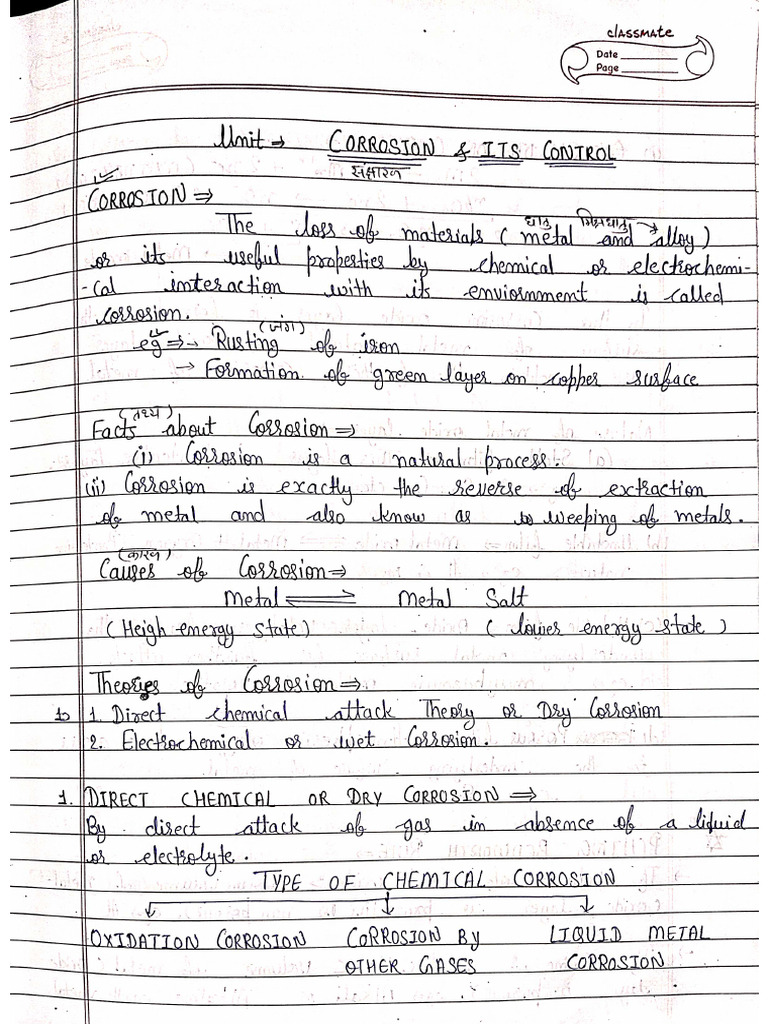 classmate
Date
Page
Unit → CORROSION & ITS CONTROL
संक्षारण
CORROSION ⇒
धातु मिश्रधातु
The loss of materials ( metal and alloy )
or its useful properties by chemical or electrochemi-
-cal interaction with its enviornment is called
corrosion.
(जंग)
eg ⇒→ Rusting of iron
→ Formation of green layer on copper surface
(तथ्य)
Facts about Corrosion ⇒
(i) Corrosion is a natural process.
(ii) Corrosion is exactly the reverse of extraction
of metal and also know as weeping of metals.
(कारण)
Causes of Corrosion ⇒
Metal ⇌ Metal Salt
(Heigh energy state) ( lower energy state )
Theories of Corrosion ⇒
1. Direct chemical attack Theory or Dry Corrosion
2. Electrochemical or wet Corrosion.
1. DIRECT CHEMICAL OR DRY CORROSION ⇒
By direct attack of gas in absence of a liquid
or electrolyte.
TYPE OF CHEMICAL CORROSION
OXIDATION CORROSION CORROSION BY LIQUID METAL
OTHER GASES CORROSION